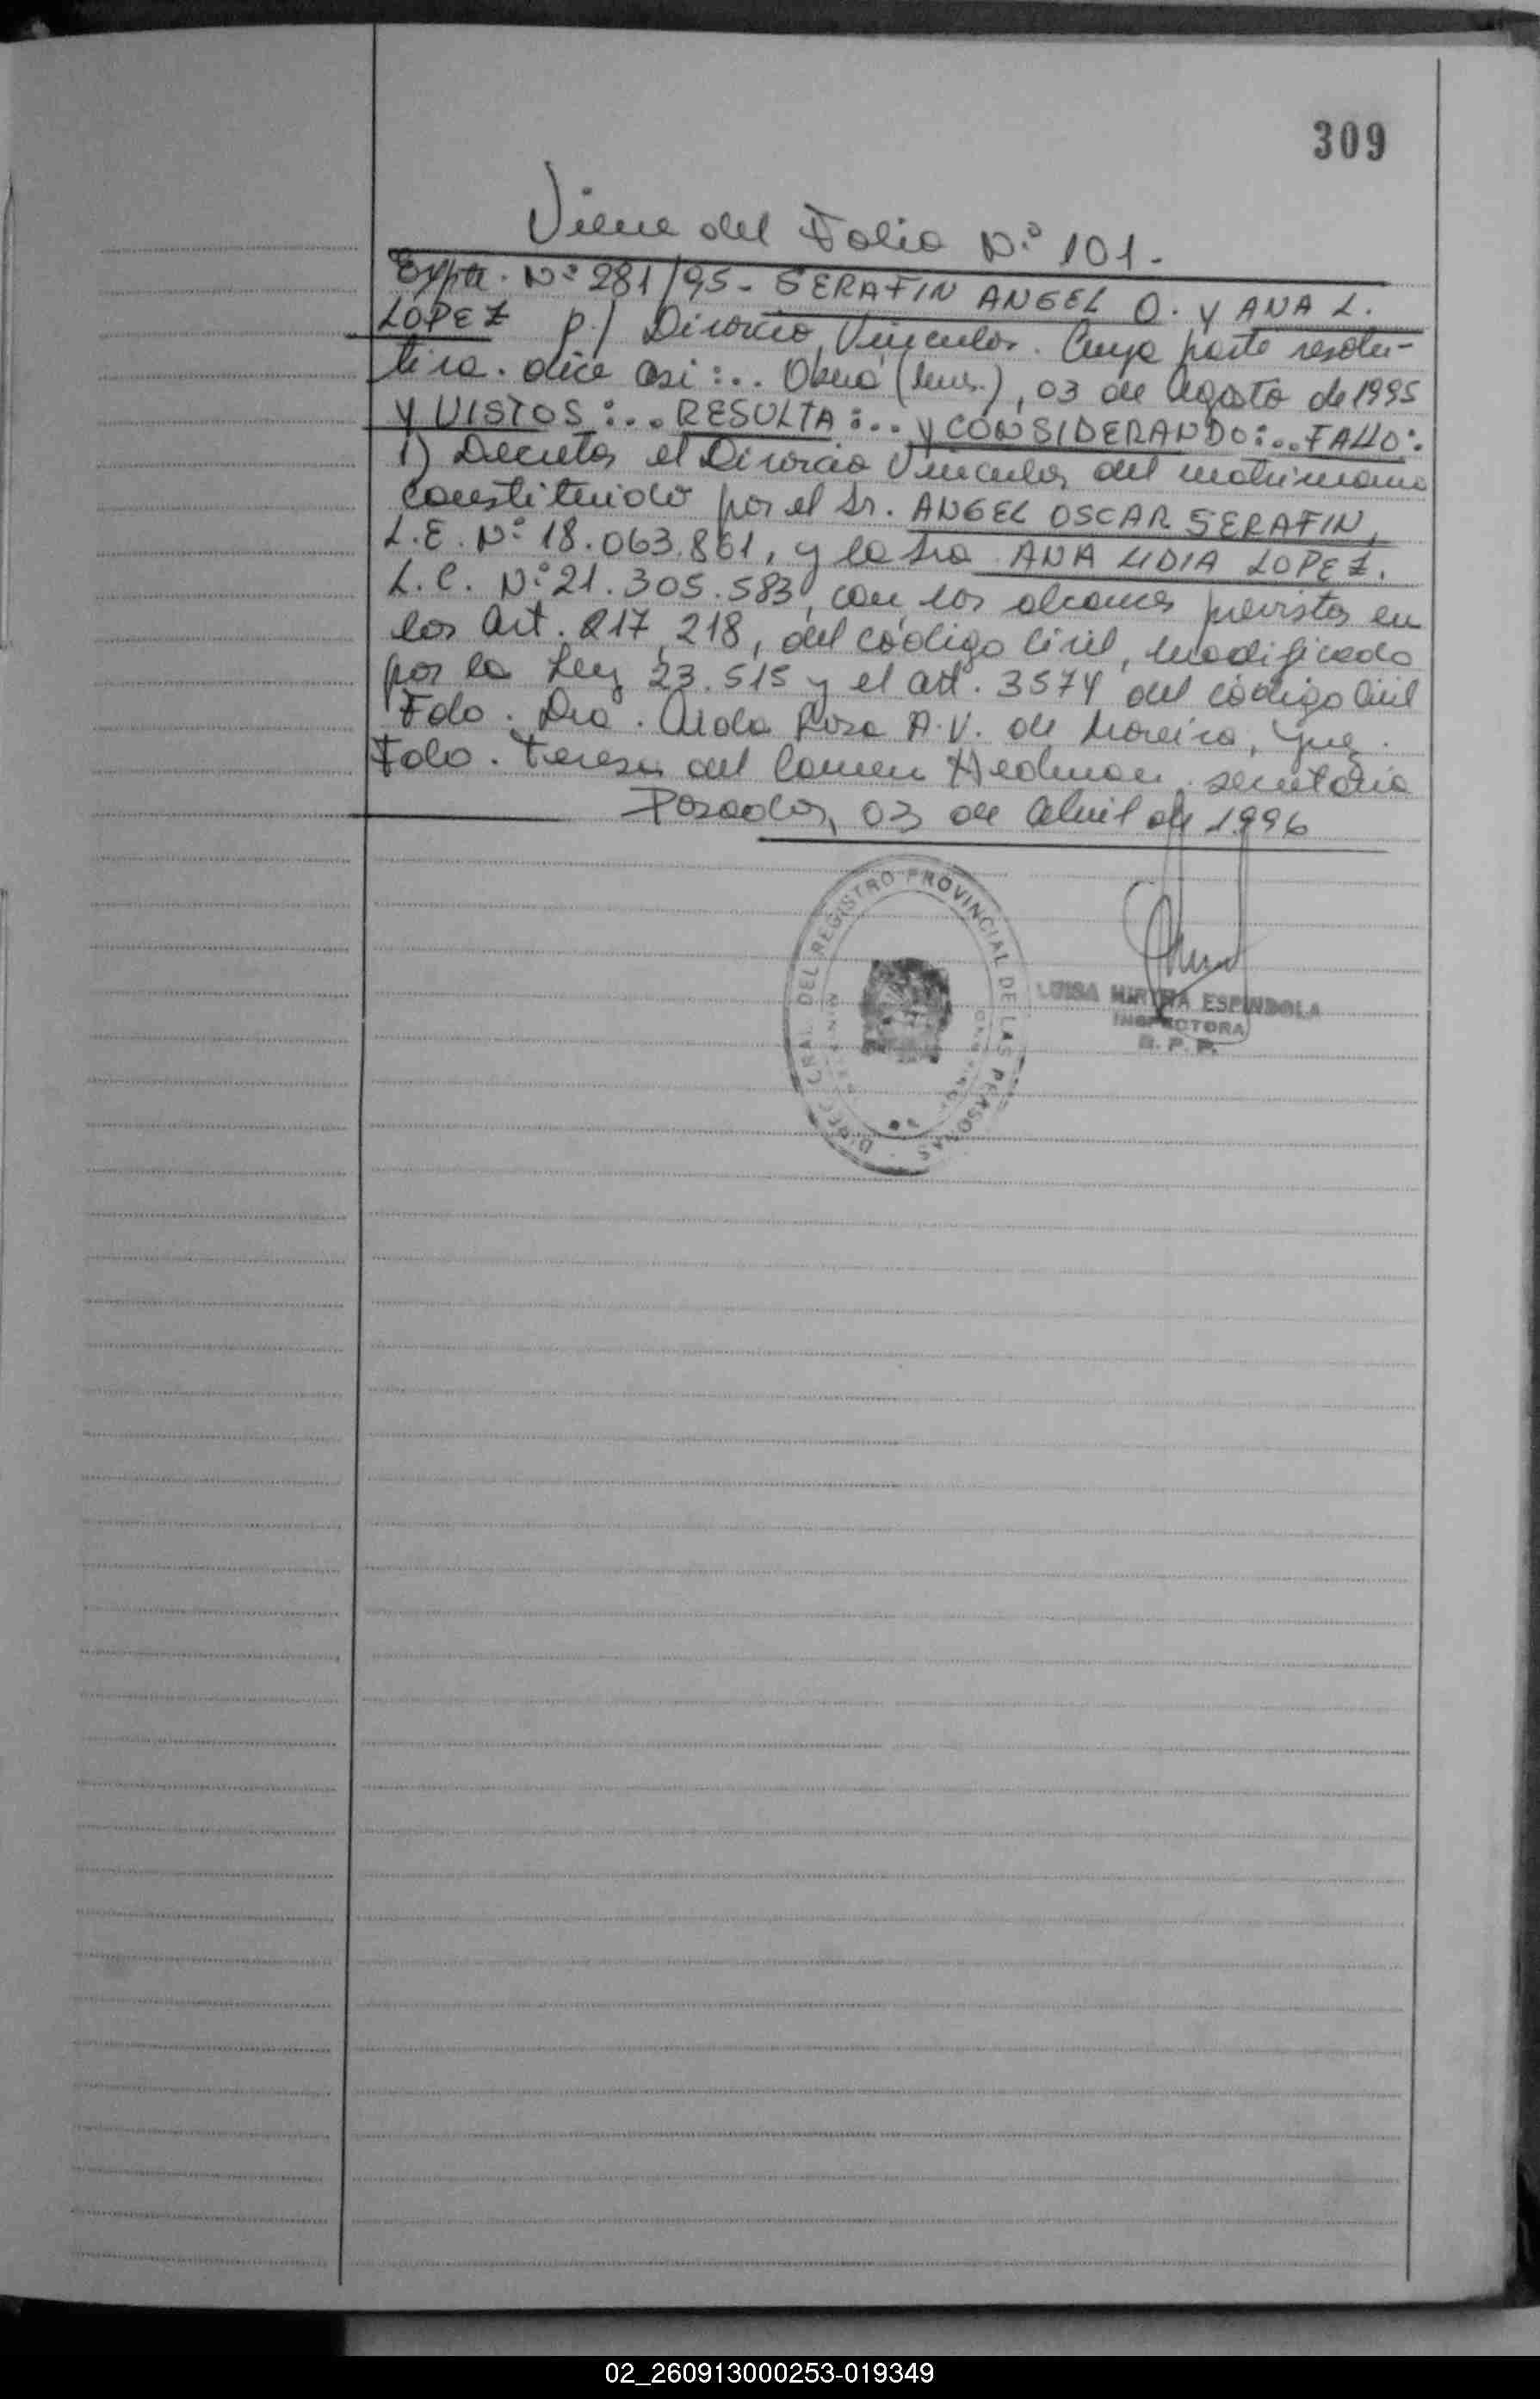 309
Viene del Folio N.º 101.-
Expte. Nº 281/95 - SERAFIN ANGEL O. Y ANA L.
LOPEZ p./ Divorcio Vincular. Cuya parte resolu-
tiva. dice asi:.. Oberá (Mnes.), 03 de Agosto de 1995
Y VISTOS:... RESULTA:... y CONSIDERANDO:... FALLO:
1) Decretar el Divorcio Vincular del matrimonio
constituido por el Sr. ANGEL OSCAR SERAFIN,
L.E. Nº 18.063.861, y la Sra ANA LIDIA LOPEZ.
L.C. Nº 21.305.583, con los alcances previstos en
los Art. 217, 218, del código Civil, modificado
por la Ley 23.515 y el art. 3574 del código Civil
Fdo. Dra. Alda Rosa A.V. de Moreira, Juez.
Fdo. Teresa del Carmen Hedman secretaria
Posadas, 03 de Abril de 1996
DIREC. GRAL. DEL REGISTRO PROVINCIAL DE LAS PERSONAS
LUISA MIRTHA ESPINDOLA
INSPECTORA
R. P. P.
02_260913000253-019349